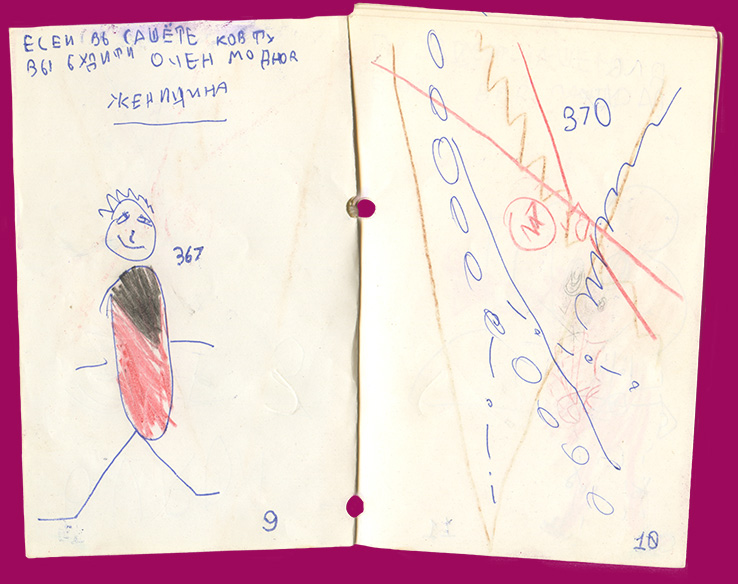 ЕСЕИ ВЬ САШЁТЕ КОВТУ
ВЫ БУДИТИ ОЧЕН МОДНОЯ
ЖЕНИЩИНА
367
9
370
М
10